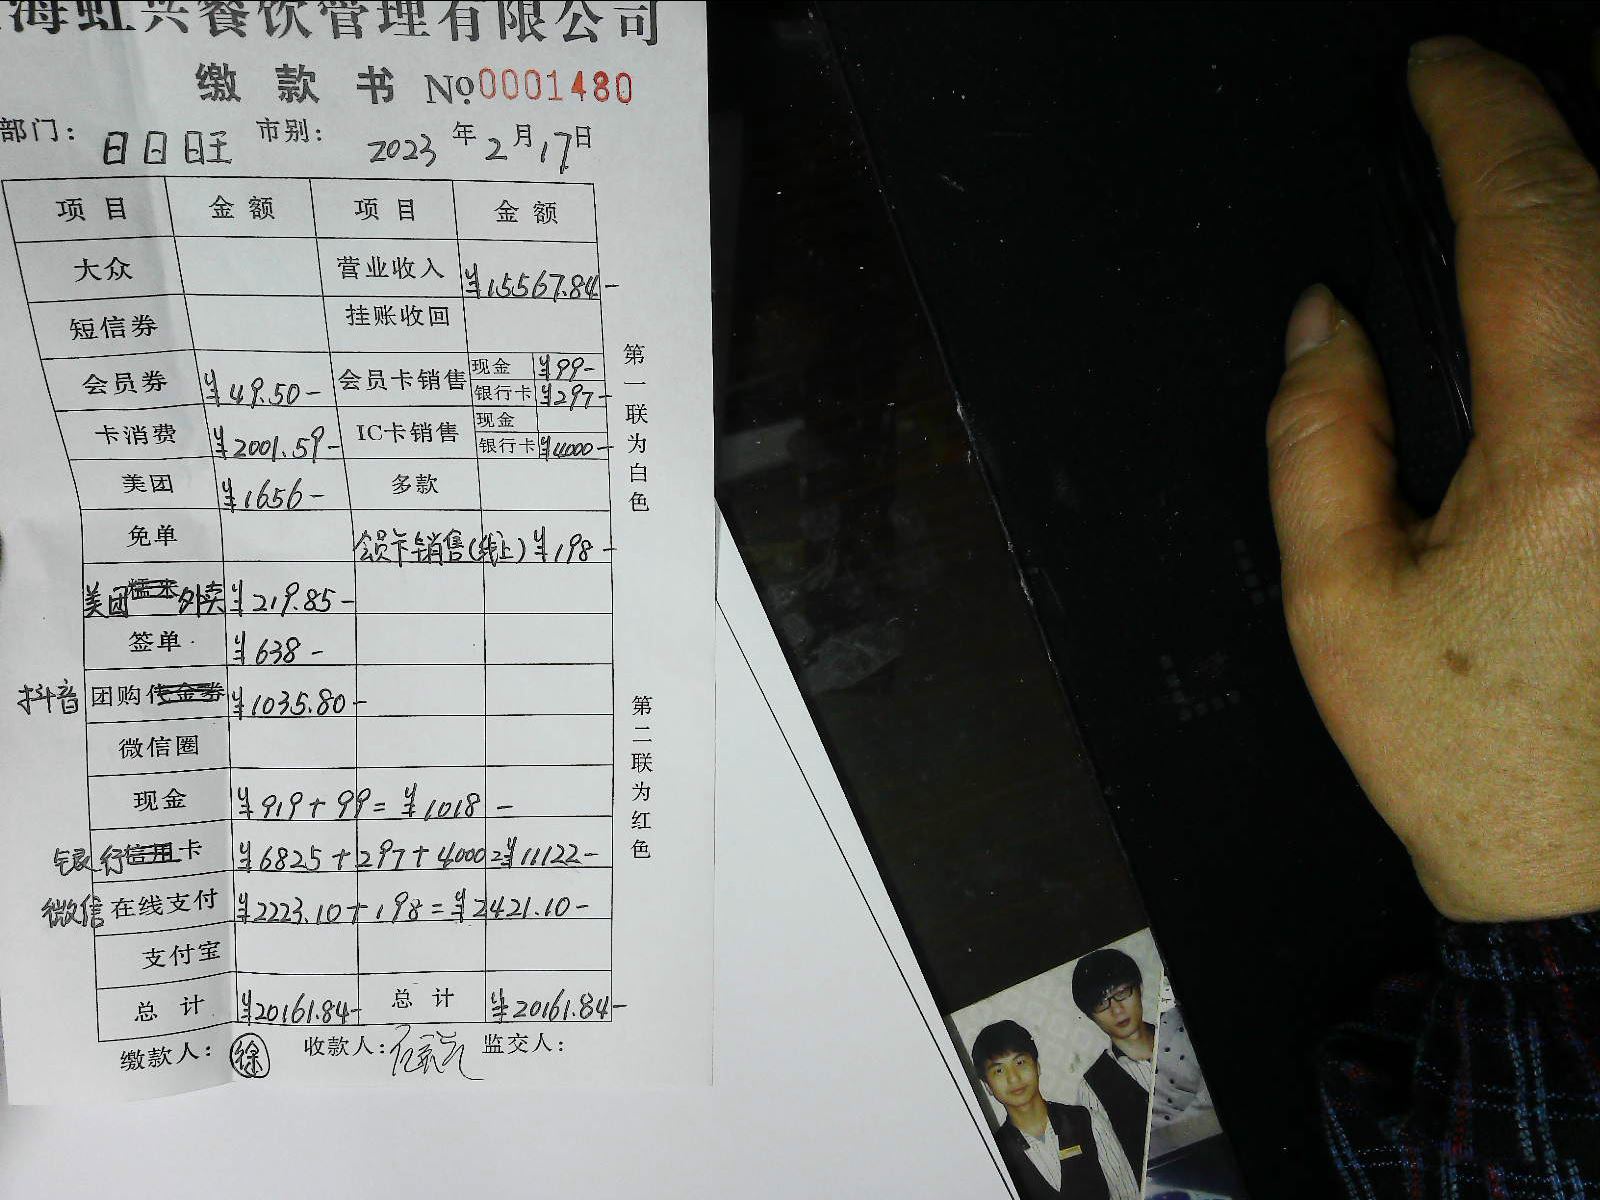 海虹兴餐饮管理有限公司
缴款书 No 0001480
部门: 日日旺 市别: 2023年2月17日
项目 金额 项目 金额
大众 营业收入 ¥15567.84-
短信券 挂账收回
会员券 ¥49.50- 会员卡销售 现金 ¥99-
银行卡 ¥297-
卡消费 ¥2001.59- IC卡销售 现金
银行卡 ¥4000-
美团 ¥1656- 多款
免单 会员卡销售(线上) ¥198-
美团外卖 ¥219.85-
签单 ¥638-
抖音 团购 ¥1035.80-
微信圈
现金 ¥919+99=¥1018-
银行卡 ¥6825+297+4000=¥11122-
微信在线支付 ¥2223.10+198=¥2421.10-
支付宝
总计 ¥20161.84- 总计 ¥20161.84-
缴款人: 徐 收款人: 监交人:
第一联为白色
第二联为红色